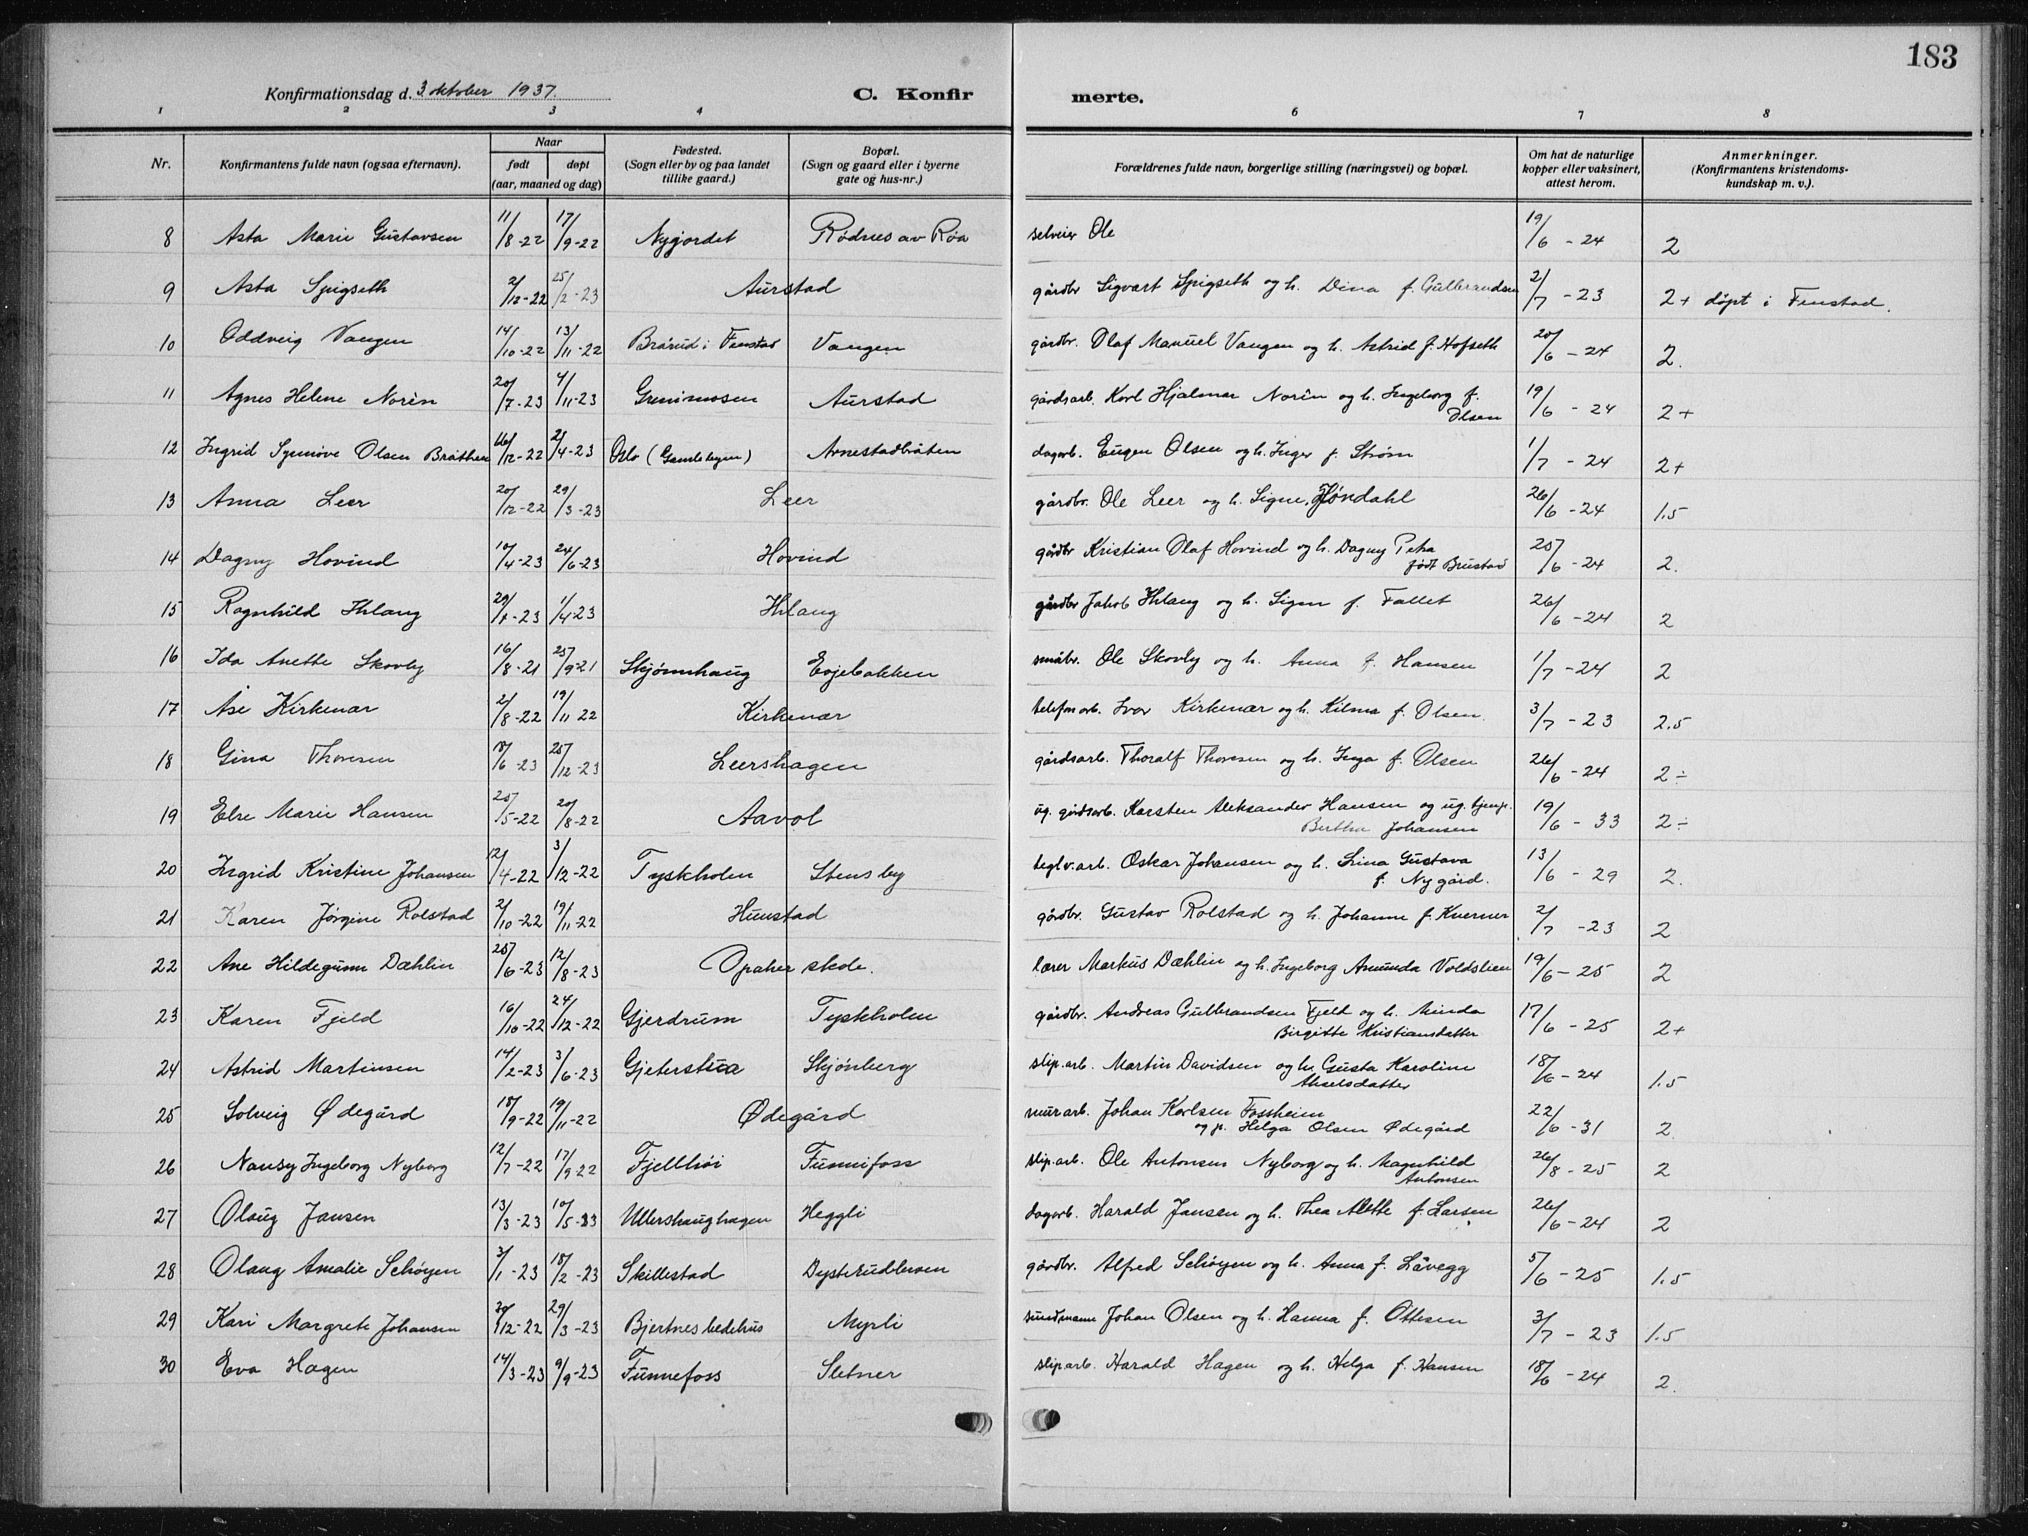 183
Konfirmationsdag d. 3 oktober 1937. C. Konfirmerte.
1 2 3 4 6 7 8
Nr. Konfirmantens fulde navn (ogsaa efternavn). Naar født døpt (aar, maaned og dag) Fødested. (Sogn eller by og paa landet tillike gaard.) Bopæl. (Sogn og gaard eller i byerne gate og hus-nr.) Forældrenes fulde navn, borgerlige stilling (næringsvei) og bopæl. Om hat de naturlige kopper eller vaksinert, attest herom. Anmerkninger. (Konfirmantens kristendomskundskap m. v.).
8 Asta Marie Gustavsen 11/8-22 17/9-22 Nygjordet Rødnes av Røa selveier Ole 19/6-24 2
9 Asta Spigseth 2/12-22 25/2-23 Aurstad gårdbr Sigvart Spigseth og h. Dina f. Gulbrandsen 2/7-23 2+ døpt i Fenstad.
10 Oddveig Vangen 14/10-22 13/11-22 Brårud i Fenstad Vangen gårdbr. Olaf Manuel Vangen og h. Astrid f. Hofseth 20/6-24 2.
11 Agnes Helene Norèn 20/7-23 4/11-23 Grenimosen Aurstad gårdsarb. Karl Hjalmar Norèn og h. Ingeborg f. Olsen 19/6-24 2+
12 Ingrid Synnøve Olsen Bråthen 16/12-22 2/4-23 Oslo (Gamlebyen) Arnestadbråten dagarb. Eugen Olsen og h. Inger f. Strøm 1/7-24 2+
13 Anna Leer 20/12-22 29/3-23 Leer gårdbr. Ole Leer og h. Signe, Høndahl 26/6-24 1.5
14 Dagny Hovind 10/4-23 24/6-23 Hovind gårdbr Kristian Olaf Hovind og h. Dagny Petra født Brustad 25/6-24 2.
15 Ragnhild Ihlang 29/1-23 1/4 23 Ihlang gårdbr Jakob Ihlang og h. Signe f. Fallet 26/6-24 2
16 Ida Anette Skovly 16/8-21 25/9-21 Skjønnhaug Evjebakken småbr. Ole Skovly og h. Anna f. Hansen 1/7-24 2
17 Åse Kirkenær 2/8-22 19/11 22 Kirkenær telefonarb. Ivar Kirkenær og h. Kilma f. Olsen. 3/7-23 2.5
18 Gina Thoresen 18/6-23 25/12-23 Leershagen gårdsarb. Thoralf Thoresen og h. Inga f. Olsen 26/6-24 2÷
19 Else Marie Hansen 25/5-22 20/8-22 Aavol ug. gårdsarb. Karsten Aleksander Hansen og ug. tjenp. Bertha Johansen 19/6-33 2÷
20 Ingrid Kristine Johansen 12/4-22 3/12-22 Tyskholen Stensby teglv.arb. Oskar Johansen og h. Stina Gustava f. Nygård. 13/6-29 2.
21 Karen Jørgine Rolstad 2/10-22 19/11-22 Hunstad gårdbr. Gustav Rolstad og h. Johanne f. Kverner 2/7-23 2
22 Ane Hildegunn Dæhlin 25/6-23 12/8-23 Opaker skole. lærer Markus Dæhlin og h. Ingeborg Amunda Voldslien 19/6-25 2
23 Karen Fjeld 16/10-22 24/12-22 Gjerdrum Tyskholen gårdbr. Andreas Gulbrandsen Fjeld og h. Minda Birgitte Kristiansdatter 17/6-25 2+
24 Astrid Martinsen 14/2-23 3/6-23 Gjeterstua Skjønberg slip.arb. Martin Davidsen og h. Gusta Karoline Akselsdatter 18/6-24 1.5
25 Solveig Ødegård 18/9-22 19/11-22 Ødegård murarb. Johan Karlsen Fossheim og p. Helga Olsen Ødegård 22/6-31 2
26 Nansy Ingeborg Nyborg 12/7-22 17/9-22 Fjellhöi Funnefoss slip.arb. Ole Antonsen Nyborg og h. Magnhild Antonsen 26/8-25 2
27 Olaug Jansen 13/3-23 10/5-23 Ullershaughagen Heggli dagarb. Harald Jansen og h. Thea Alette f. Larsen 26/6-24 2
28 Olaug Amalie Schøyen 3/1-23 18/2-23 Skillestad Dysterudlersen gårdbr. Alfred Schøyen og h. Anna f. Låvegg 5/6-25 1.5
29 Kari Margrete Johansen 30/12-22 29/3-23 Bjertnes bedehus Myrli sundmann Johan Olsen og h. Hanna f. Ottesen 3/7-23 1.5
30 Eva Hagen 14/3-23 9/9-23 Funnefoss Sletner slip.arb. Harald Hagen og h. Helga f. Hansen 18/6-24 2.